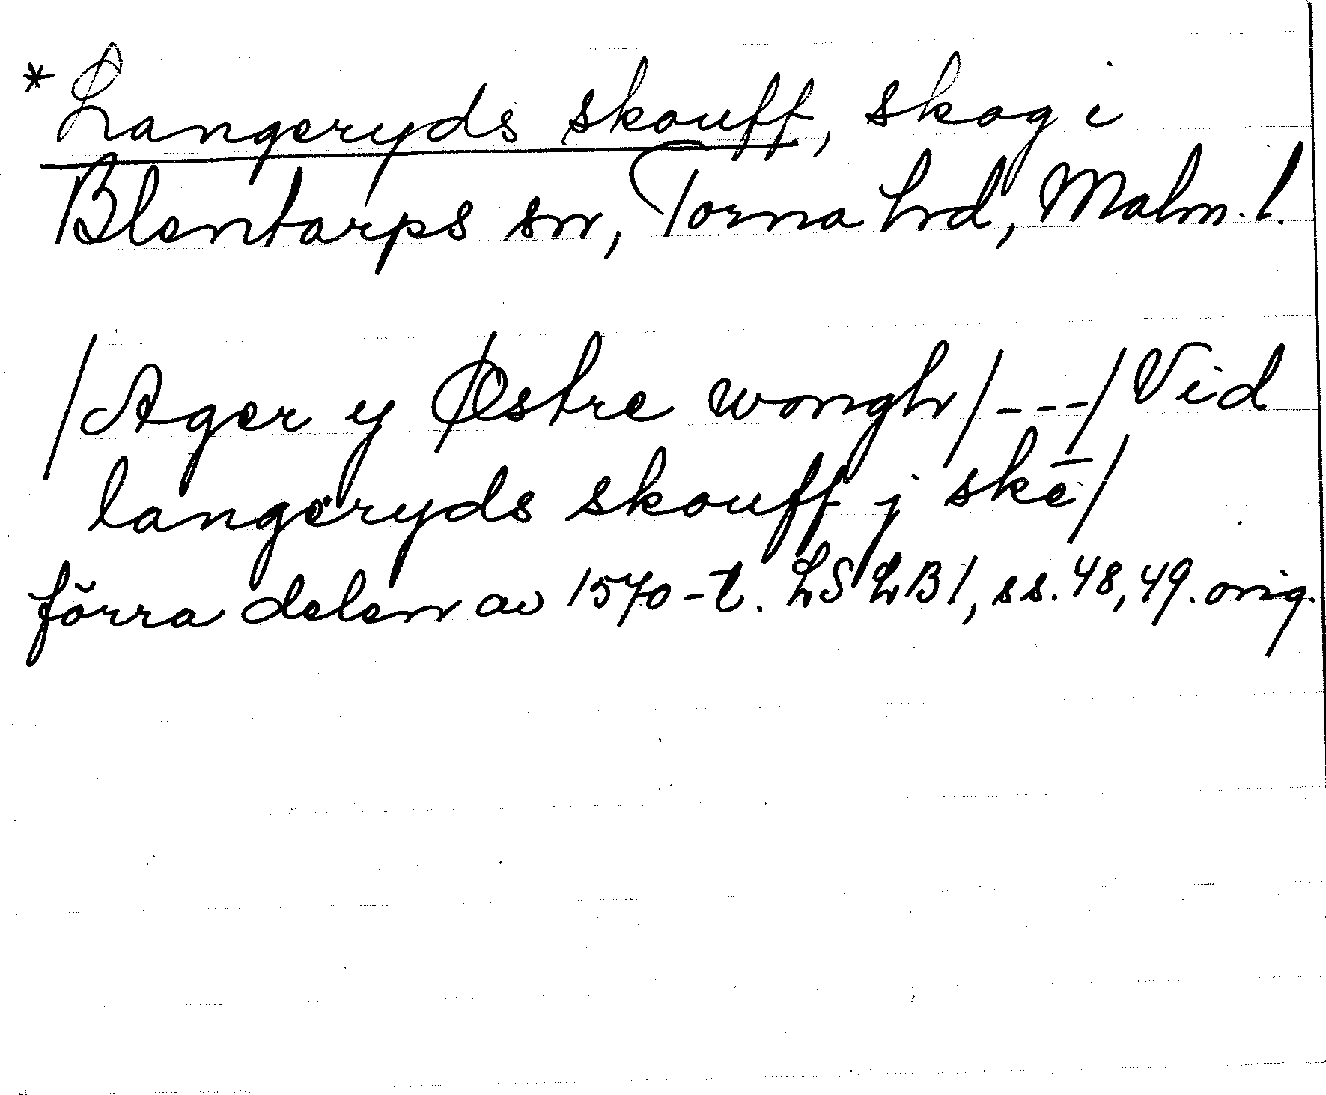 *Langeryds skouff, skog i
Blentarps sn, Torna hrd, Malm. l.
/Ager y Østre wongh/---/Vid
langeryds skouff j skē/
förra delen av 1570-t. LSLB1, ss. 48, 49. orig.